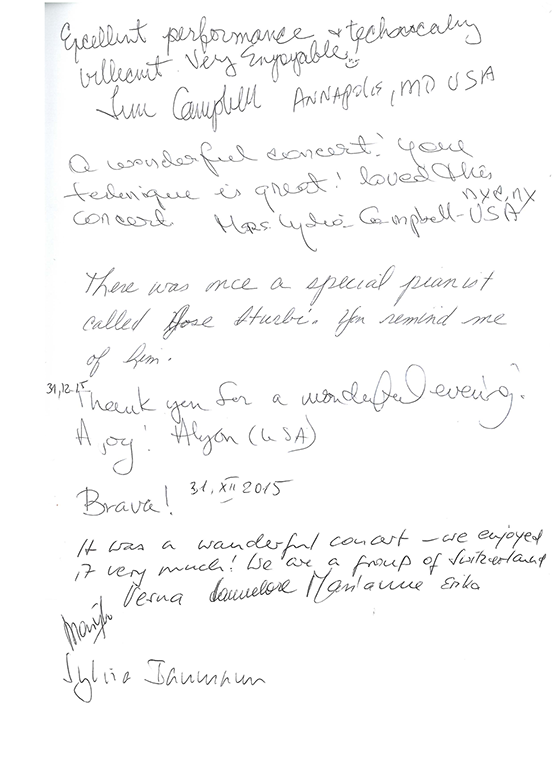 Excellent performance & technically
brilliant. Very Enjoyable!
Jim Campbell ANNAPOLIS, MD USA
A wonderful concert! your
technique is great! loved this
concert Mrs Lydia Campbell-USA
NYC, NY
There was once a special pianist
called Jose Iturbi. You remind me
of him.
31.12.15
Thank you for a wonderful evening.
A joy! Alyon (USA)
Brava! 31. XII 2015
It was a wanderful concert – we enjoyed
it very much! We are a group of Switzerland
Verna Hannelore Marianne Erika
Sylvia Baumann